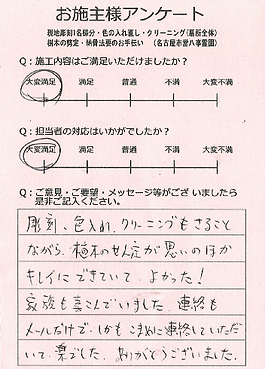 お施主様アンケート
現地彫刻1名様分・色の入れ直し・クリーニング(墓所全体)
樹木の剪定・納骨法要のお手伝い (名古屋市営八事霊園)
Q:施工内容はご満足いただけましたか?
大変満足 満足 普通 不満 大変不満
Q:担当者の対応はいかがでしたか?
大変満足 満足 普通 不満 大変不満
Q:ご意見・ご要望・メッセージ等がござ いましたら
是非ご記入ください。
彫刻、色入れ、クリーニングもさること
ながら、植木のせん定が思いのほか
キレイにできていて、よかった!
家族も喜こんでいました。連絡も
メールだけで、しかもこまめに連絡していただ
いて、楽でした。ありがとうございました。